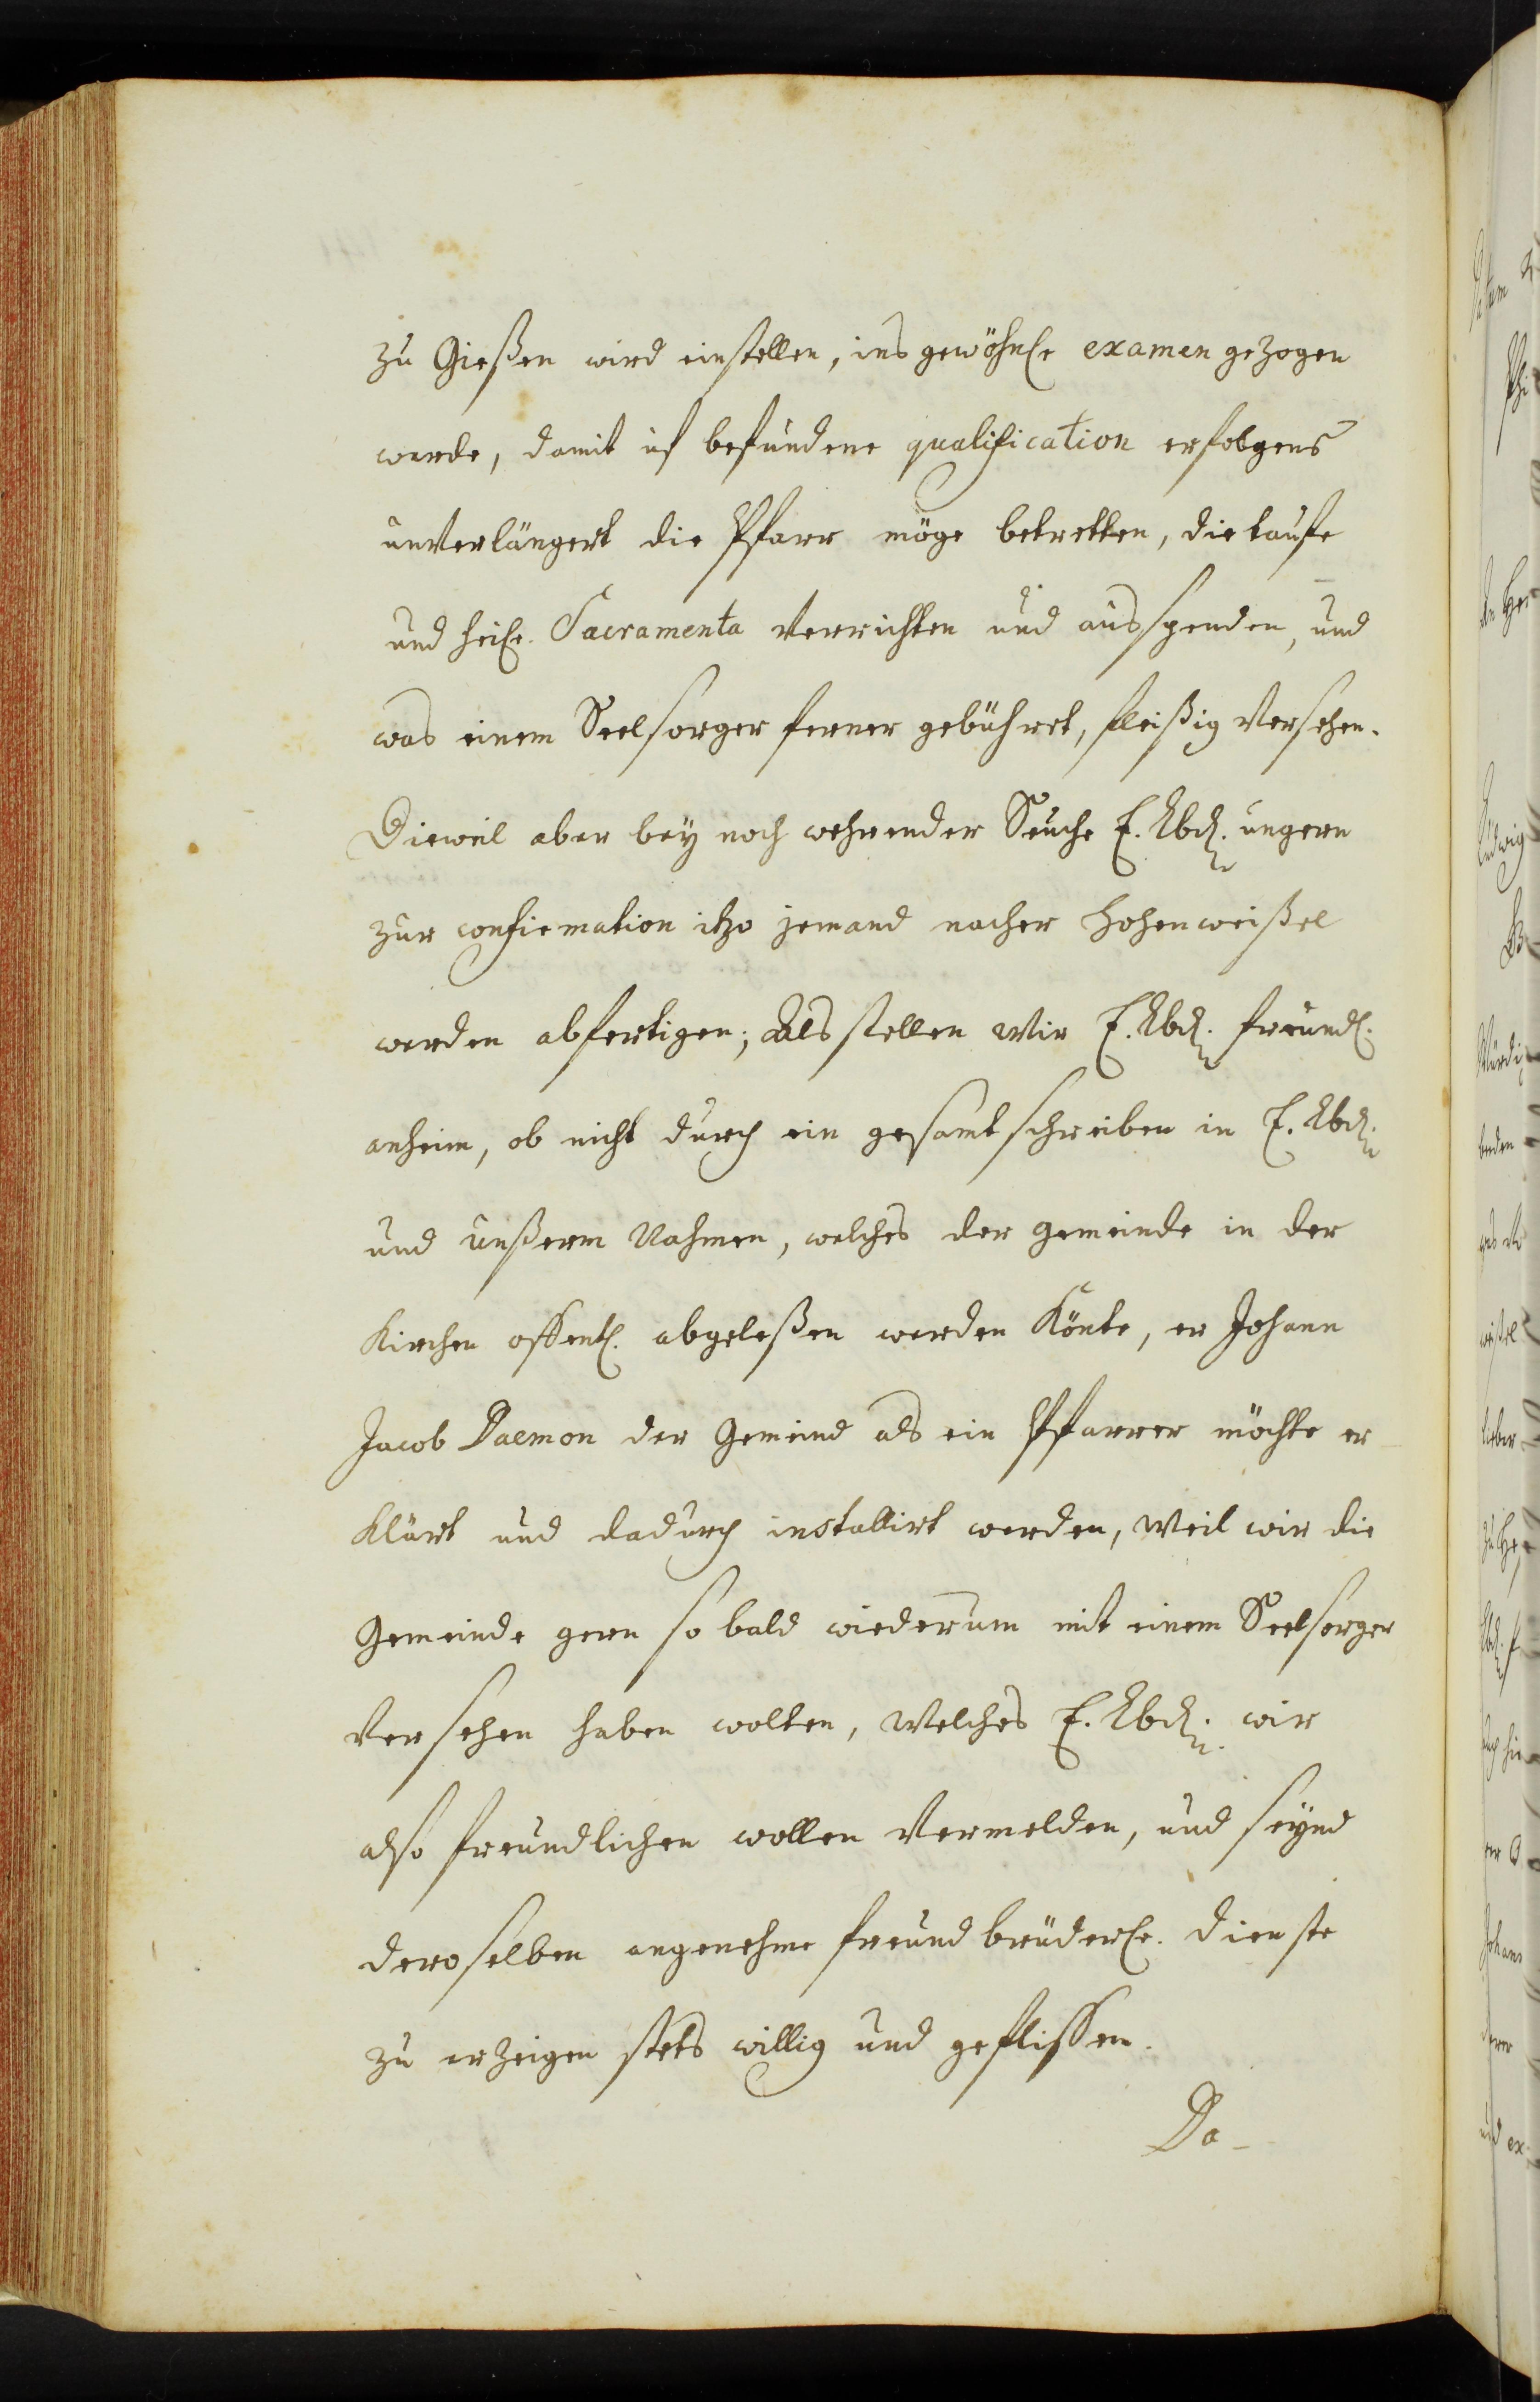 zu Gießen wird einstellen, ins gewöhnl. examen gezogen
werde, damit uf befundene qualification erfolgens
unverlängert die Pfarr möge betretten, die taufe
und heil. Sacramenta verrichten und ausspenden, und
was einem Seelsorger ferner gebühret, fleißig versehen.
Dieweil aber bey noch wehrender Seuche E. Lbd. ungern
zur confirmation itzo jemand nacher Hohenweißel
werden abfertigen; Als stellen wir E. Lbd. freundl.
anheim, ob nicht durch ein gesamtschreiben in E. Lbd.
und unßerm Nahmen, welches der gemeinde in der
Kirchen offentl. abgeleßen werden Könte, er Johann
Jacob Daemon der Gemeind als ein Pfarrer möchte er
klärt und dadurch installirt werden, weil wir die
Gemeinde gern so bald wiederum mit einem Seelsorger
versehen haben wolten, welches E. Lbd. wir
also freundlichen wollen vermelden, und seynd
deroselben angenehme freundbrüderl. dienste
zu erzeigen stets willig und geflissen.
Da-